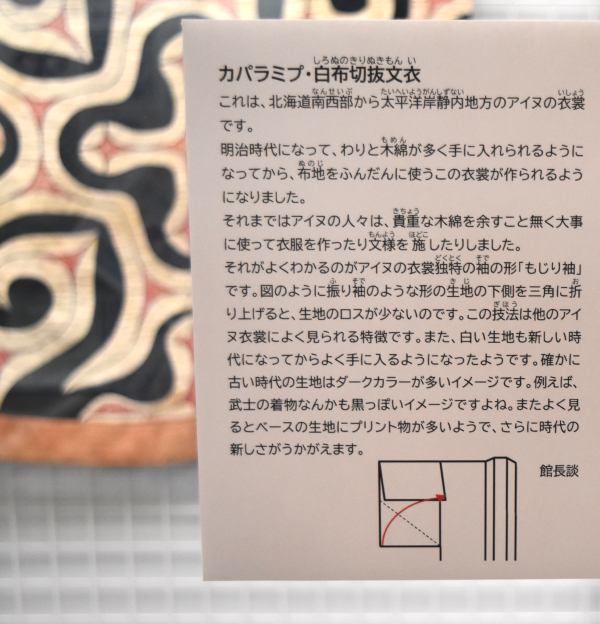 カパラミプ・白布切抜文衣
これは、北海道南西部から太平洋岸静内地方のアイヌの衣裳
です。
明治時代になって、わりと木綿が多く手に入れられるように
なってから、布地をふんだんに使うこの衣裳が作られるよう
になりました。
それまではアイヌの人々は、貴重な木綿を余すこと無く大事
に使って衣服を作ったり文様を施したりしました。
それがよくわかるのがアイヌの衣裳独特の袖の形「もじり袖」
です。図のように振り袖のような形の生地の下側を三角に折
り上げると、生地のロスが少ないのです。この技法は他のアイ
ヌ衣裳によく見られる特徴です。また、白い生地も新しい時
代になってからよく手に入るようになったようです。確かに
古い時代の生地はダークカラーが多いイメージです。例えば、
武士の着物なんかも黒っぽいイメージですよね。またよく見
るとベースの生地にプリント物が多いようで、さらに時代の
新しさがうかがえます。
館長談